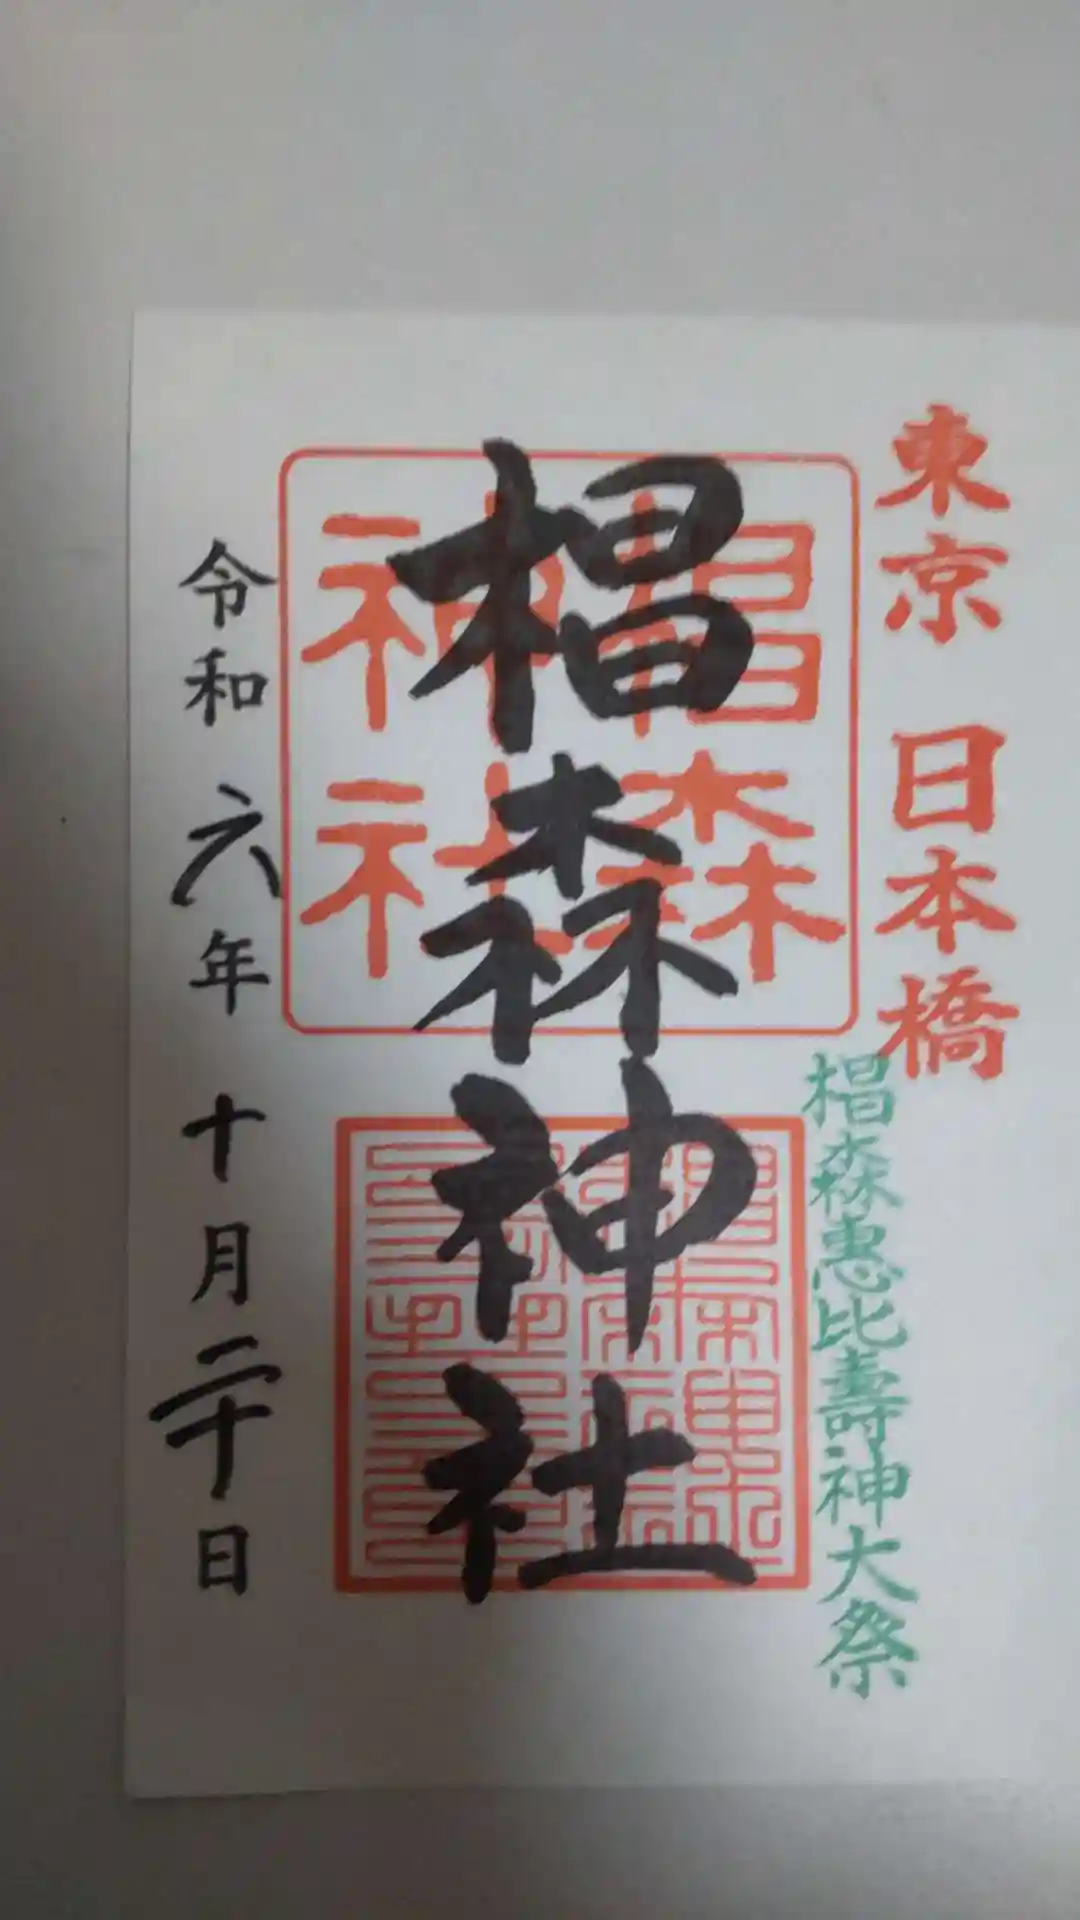 東京 日本橋
椙森惠比壽神大祭
椙森神社
椙森
神社
令和六年十月二十日